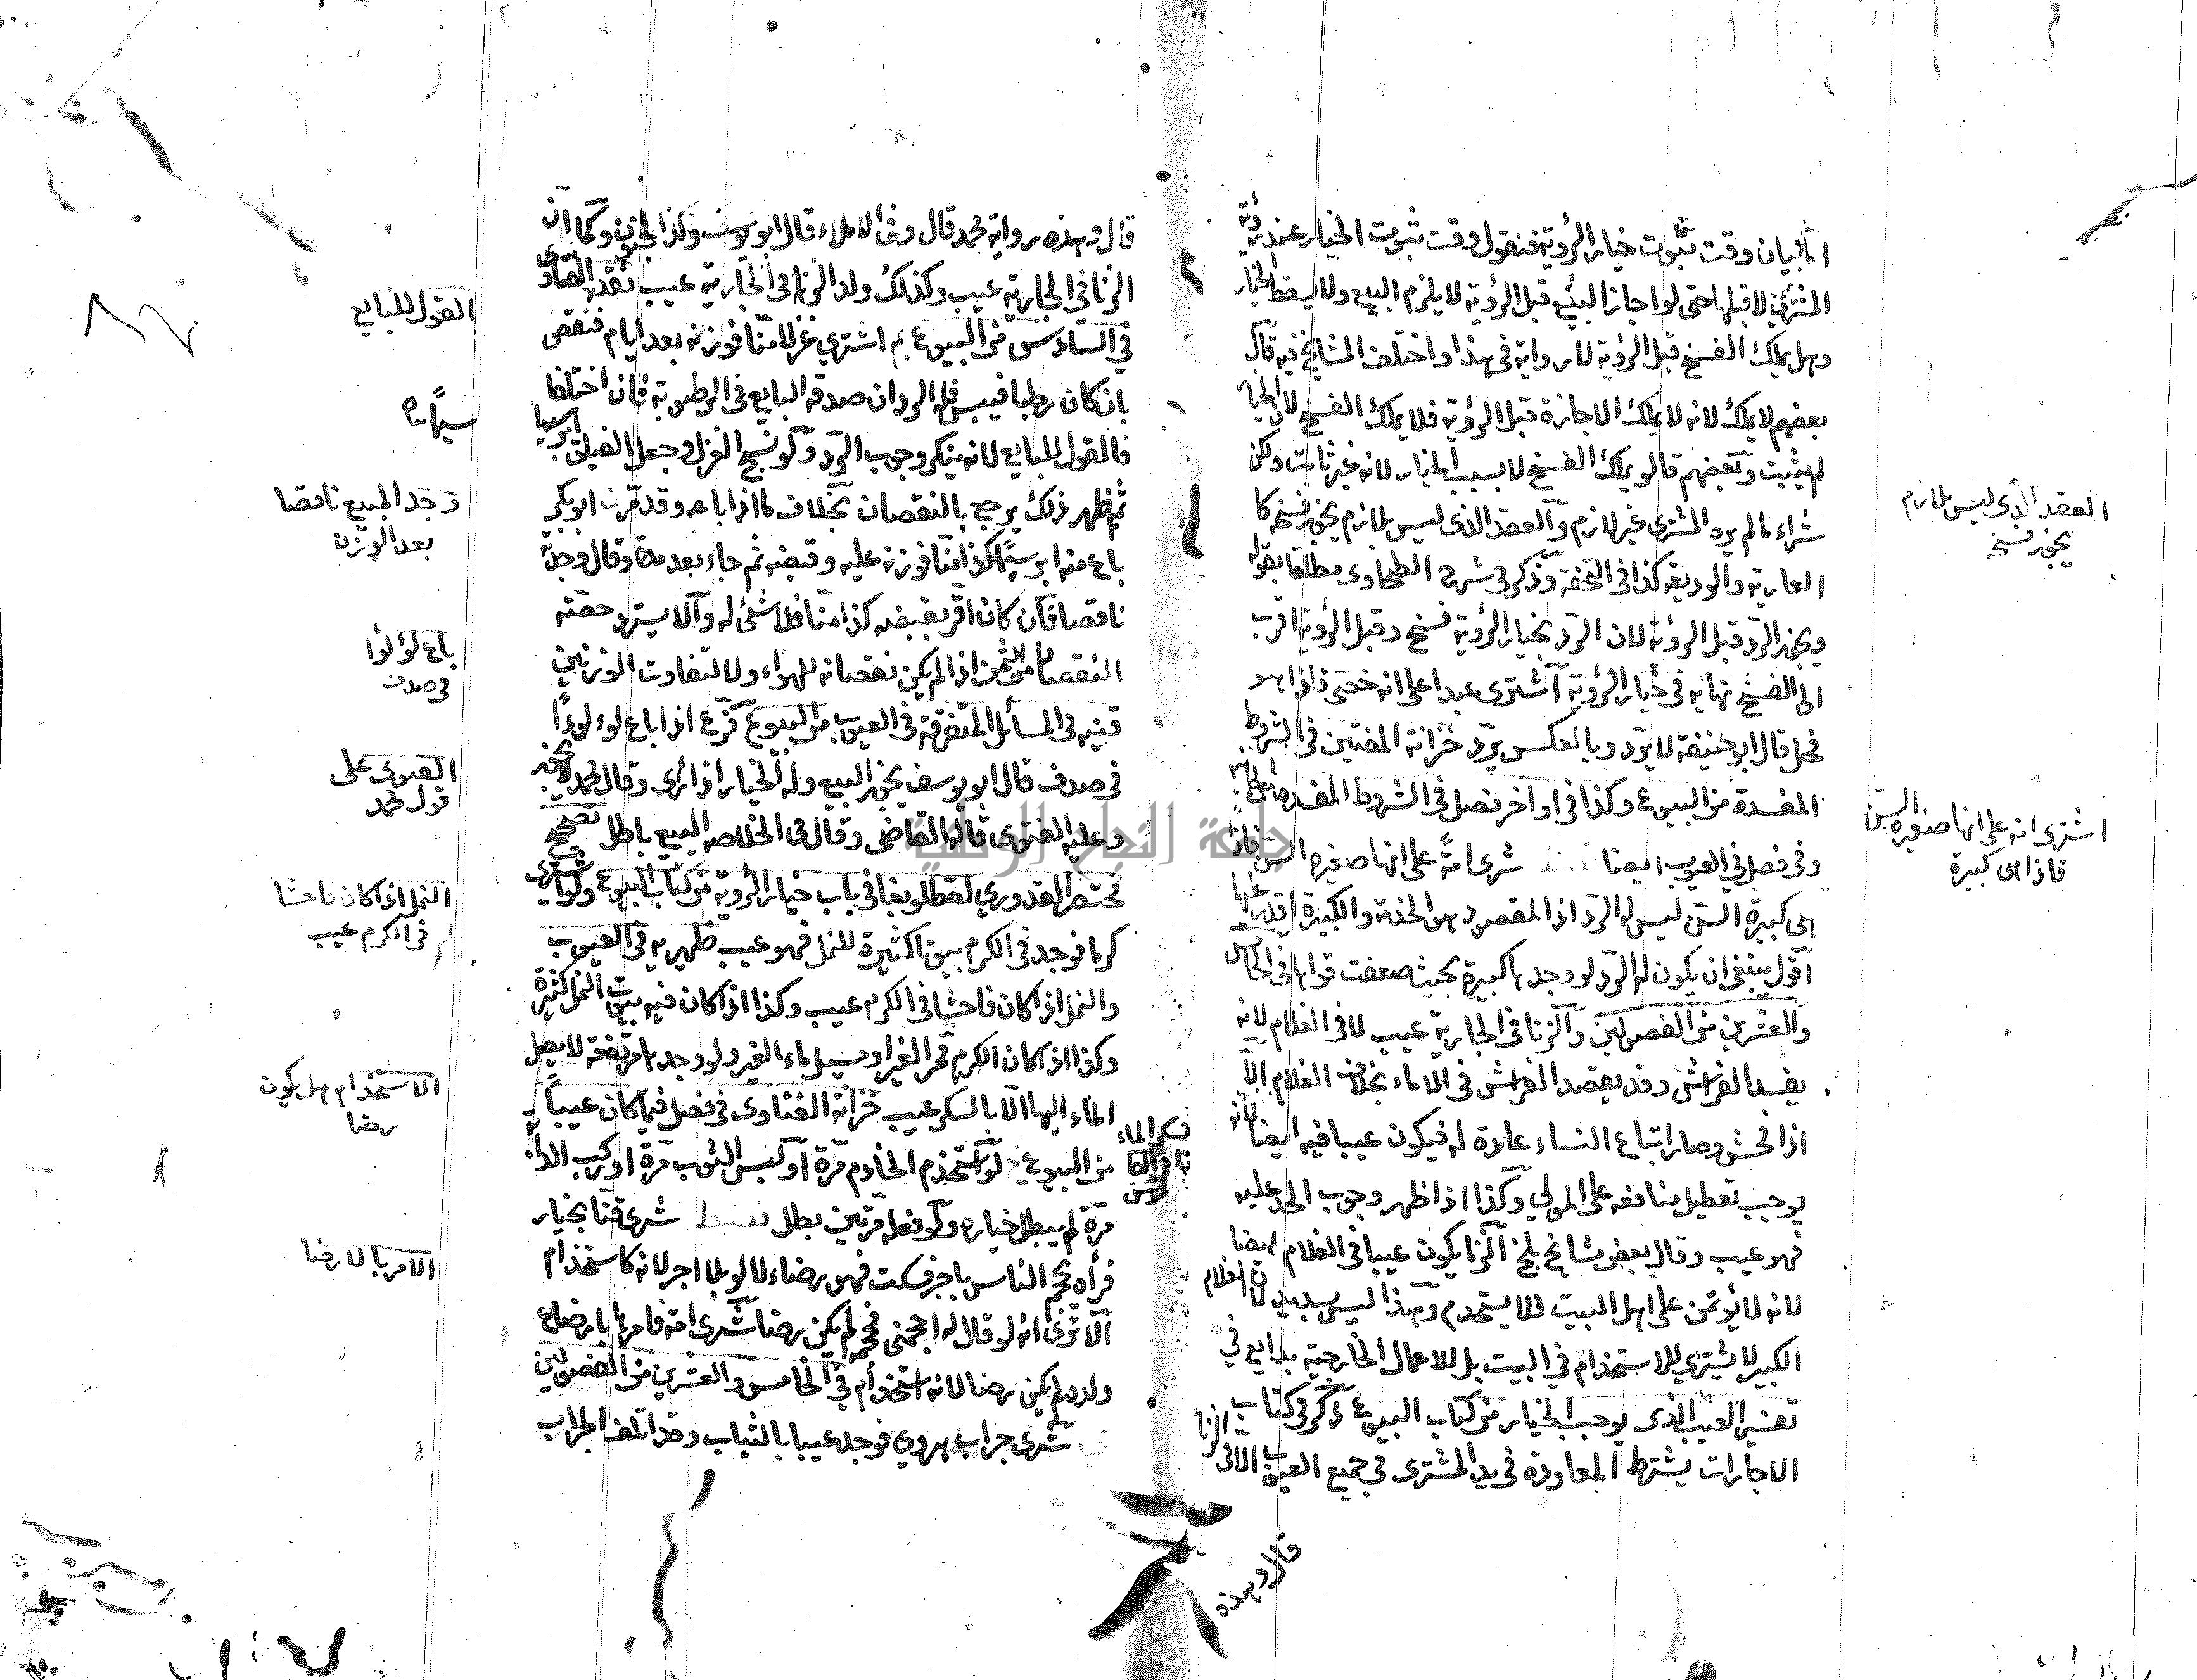 اما بيان وقت ثبوت خيار الرؤية فنقول وقت ثبوت الخيار عند رؤية
المشتري لا قبلها حتى لو اجاز البيع قبل الرؤية لا يلزم البيع ولا يسقط الخيار
وهل يملك الفسخ قبل الرؤية لا رواية في هذا واختلف المشايخ فيه قال
بعضهم لا يملك لانه لا يملك الاجازة قبل الرؤية فلا يملك الفسخ لان الخيار
لم يثبت وبعضهم قالوا يملك الفسخ لا بسبب الخيار لانه غير ثابت ولكن
شراء ما لم يره المشترى غير لازم والعقد الذى ليس بلازم يجوز فسخه كا
العارية والوديعة كذا في التحفة وذكر في شرح الطحاوى مطلقا بقوله
ويجوز الرد قبل الرؤية لان الرد بخيار الرؤية فسخ وقبل الرؤية اقرب
الى الفسخ نهايه في خيار الرؤية اشترى عبدا على انه خصى فاذا هو
فحل قال ابو حنيفة لا يرد وبالعكس يرد خزانة المفتين في الشروط
المفسدة من البيوع وكذا في اواخر فصل في الشروط المفسدة من
وفي فصل في العيوب ايضا شرى امة على انها صغيرة السن فاذا
هى كبيرة السن ليس له الرد اذ المقصود هو الخدمة والكبيرة اقدر عليها
اقول ينبغى ان يكون له الرد لو وجدها كبيرة بحيث ضعفت قواها في الخامس
والعشرين من الفصولين والزنا في الجارية عيب لا في الغلام لانه
يفسد الفراش وقد يقصد الفراش في الاماء بخلاف الغلام الا
اذا فحش وصار اتباع النساء عادة له فيكون عيبا فيه ايضا لانه
يوجب تعطيل منافعه على المولي وكذا اذا ظهر وجوب الحد عليه
فهو عيب وقال بعض مشايخ بلخ الزنا يكون عيبا في الغلام ايضا
لانه لا يؤتمن على اهل البيت فلا يستخدم وهذا ليس بسديد لان الغلام
الكبير لا يشترى للاستخدام في البيت بل للاعمال الخارجية بدايع في
تفسير العيب الذى يوجب الخيار من كتاب البيوع ذكر في كتاب
الاجارات يشترط المعاودة في يد المشترى في جميع العيوب الا في الزنا
قال وهذه
العقد الذى ليس بلازم
يجوز فسخه
اشترى امه على انها صغيرة السن
فاذا هى كبيرة
قال وهذه رواية محمد قال وفي الاملاء قال ابو يوسف وكذا الجنون وكما ان
الزنا في الجارية عيب وكذلك ولد الزنا في الجارية عيب نقد الفتاوى
في السادس من البيوع اشترى غزلا منّا فوزنه بعد ايام فنقص
بان كان رطبا فيبس فله الرد ان صدقه البايع في الرطوبة فان اختلفا
فالقول للبايع لانه ينكر وجوب الرد ولو نسج الغزل وجعل الفيلق ابريسما
ثم ظهر ذلك يرجع بالنقصان بخلاف ما اذا باعه وقد مرت ابو بكر
باع منه ابريسما كذا منّا فوزنه عليه وقبضه ثم جاء بعد مدة وقال وجدته
ناقصا فان كان اقر بقبضه كذا منّا فلا شئ له والا يسترد حصته
النقصان من الثمن اذا لم يكن نقصانه للهواء ولا لتفاوت الوزنين
قنيه في المسائل المتفرقة في العيوب من البيوع فرع اذا باع لؤلؤا
في صدف قال ابو يوسف يجوز البيع وله الخيار اذا رأى وقال محمد لا يجوز
وعليه الفتوى قاله القاضى وقال في الخلاصه البيع باطل تصحيح
مختصر القدوري لقطلوبغا في باب خيار الرؤية من كتاب البيوع ولو اشترى
كرما فوجد في الكرم بيوتا كثيرة للنمل فهو عيب ظهيريه في العيوب
والنمل اذا كان فاحشا في الكرم عيب وكذا اذا كان فيه بيوت النمل كثيرة
وكذا اذا كان الكرم ممر الغير او مسيل ماء الغير ولو وجدها مرتفعة لا يصل
الماء اليها الا بالسكر عيب خزانة الفتاوى في فصل فيما كان عيبا
من البيوع لو استخدم الخادم مرة او لبس الثوب مرة او ركب الدابة
مرة لم يبطل خياره ولو فعله مرتين بطل شرى قنّا بخيار
فرأه يحجم الناس باجر فسكت فهو رضاء لا لو بلا اجر لانه كاستخدام
الا ترى انه لو قال له احجمنى فحجمه لم يكن رضا شرى امة فامرها بارضاع
ولده لم يكن رضا لانه استخدام في الخامس والعشرين من الفصولين
شرى جراب هروى فوجد عيبا بالثياب وقد اتلف الجراب
القول للبايع
وجد المبيع ناقصا
بعد الوزن
باع لؤلؤا
في صدف
الفتوى على
قول محمد
النمل اذا كان فاحشا
في الكرم عيب
الاستخدام هل يكون
رضا
الامر بالارضا
سكر الماء
جامعة النجاح الوطنية